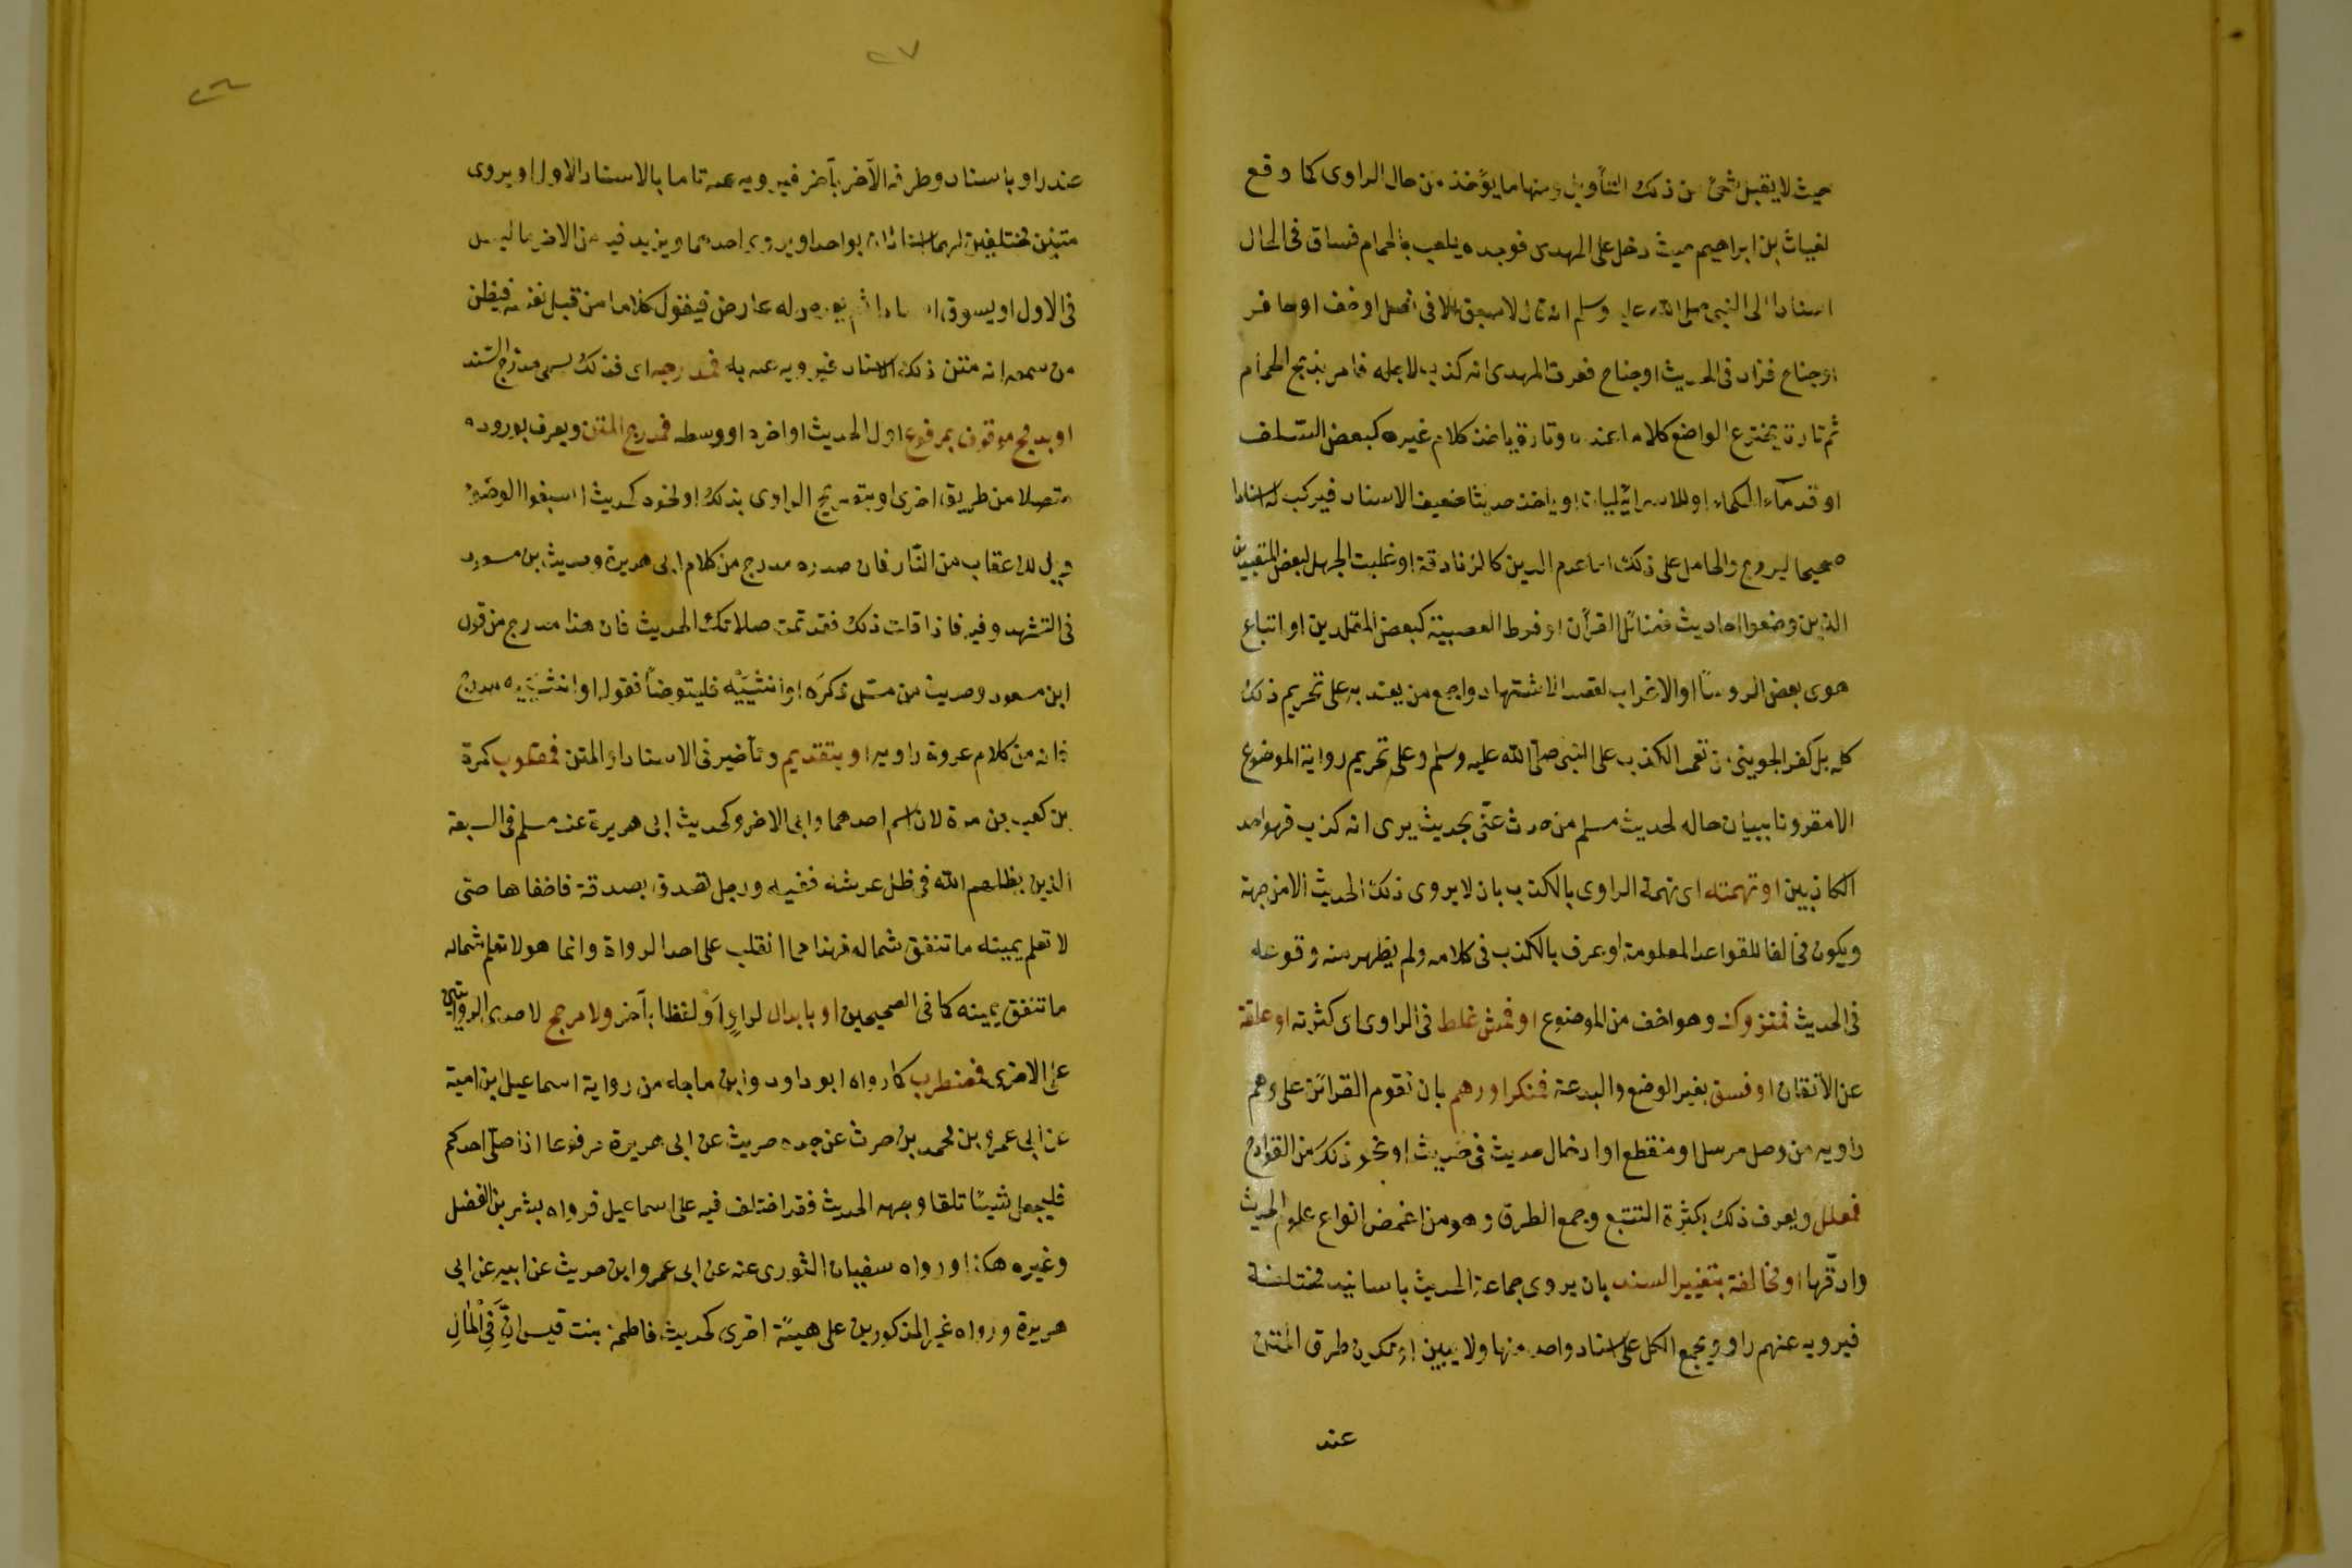 حيث لا يقبل شئ من ذلك التأويل ومنها ما يؤخذ من حال الراوى كما وقع
لغياث بن ابراهيم حيث دخل على المهدى فوجده يلعب بالحمام فساق فى الحال
اسنادا الى النبى صلى الله عليه وسلم انه قال لا سبق الا فى نصل او خف او حافر
او جناح فزاد فى الحديث او جناح فعرف المهدى انه كذب لاجله فامر بذبح الحمام
ثم تارة يخترع الواضع كلاما عنده وتارة ياخذ كلام غيره كبعض السّلف
او قدمآء الحكماء او للاسرائيليات او ياخذ حديثا ضعيف الاسناد فيركب له اسنادا
صحيحا ليروج والحامل على ذلك اما عدم الدين كالزنادقة او غلبت الجهل لبعض المتعبدين
الذين وضعوا احاديث فضائل القرآن او فرط العصبية كبعض المقلدين او اتباع
هوى بعض الروسا او الاغراب لقصد الاشتهاد واجمع من يعتد به على تحريم ذلك
كله بل كفر الجوينى من تعمد الكذب على النبى صلّى الله عليه وسلم وعلى تحريم رواية الموضوع
الا مقرونا ببيان حاله لحديث مسلم من حدث عنّى بحديث يرى انه كذب فهو احد
الكاذبين او تهمته اى تهمة الراوى بالكذب بان لا يروى ذلك الحديث الا من جهة
ويكون مخالفا للقواعد المعلومة او عرف بالكذب فى كلامه ولم يظهر منه وقوعه
فى الحديث فمتروك وهو اخف من الموضوع او فحش غلط فى الراوى اى كثرته او غلقة
عن الاتقان او فسق بغير الوضع والبدعة فمنكر او وهم بان تقوم القرائن على وهم
راويه من وصل مرسل او منقطع او ادخال حديث فى حديث او نحو ذلك من القوادح
فمعلل ويعرف ذلك بكثرة التتبع وجمع الطرق وهو من اغمض انواع علوم الحديث
وادقّها او مخالفة بتغيير السند بان يروى جماعة الحديث باسانيد مختلفة
فيرويه عنهم راو ويجمع الكل على اسناد واحد منها ولا يبين او تكون طرق المتن
عند
٢٧
عند راو باسناد وطرفه الآخر بآخر فيرويه عنه تاما بالاسناد الاول او يروى
متنين مختلفين لهما اسنادان بواحد او يروى احدهما ويزيد فيه من الاخر ما ليس
فى الاول او يسوق اسنادا ثم يعرض له عارض فيقول كلاما من قبل نفسه فيظن
من سمعه انه متن ذلك الاسناد فيرويه عنه به فمدرجه اى فذلك يسمى مدرج السند
او بدمج موقوف بمرفوع اول الحديث او اخره او وسطه فمدرج المتن ويعرف بوروده
متصلا من طريق اخرى او بتصريح الراوى بذلك او لنحوه كحديث اسبغوا الوضوء
ويل للاعقاب من النّار فان صدره مدرج من كلام ابى هريرة وحديث بن مسعود
فى التشهد وفيه فاذا قلت ذلك فقد تمت صلاتك الحديث فان هذا مدرج من قول
ابن مسعود وحديث من مسّ ذكره او انثييه فليتوضأ فقوله او انثييه مدرج
فانه من كلام عروة راويه او بتقديم وتأخير فى الاسناد او المتن فمقلوب كمرة
بن كعب بن مرة لان اسم احدهما وابى الاخر وكحديث ابى هريرة عند مسلم فى السبعة
الذين يظلهم الله فى ظل عرشه ففيه ورجل تصدق بصدقة فاخفاها حتى
لا تعلم يمينه ما تنفق شماله فهذا مما انقلب على احد الرواة وانما هو لا تعلم شماله
ما تنفق يمينه كما فى الصحيحين او بابدال لراو او لفظا بآخر ولا مرجح لاحدى الروايتين
على الاخرى فمضطرب كما رواه ابو داود وابن ماجه من رواية اسماعيل ابن امية
عن ابى عمرو بن محمد بن حرث عن جده حريث عن ابى هريرة مرفوعا اذا صلّى احدكم
فليجعل شيئا تلقا وجهه الحديث فقد اختلف فيه على اسماعيل فرواه بشر بن الفضل
وغيره هكذا ورواه سفيان الثورى عنه عن ابى عمرو ابن حريث عن ابيه عن ابى
هريرة ورواه غير المذكورين على هيئة اخرى كحديث فاطمة بنت قيس انّ فى المال